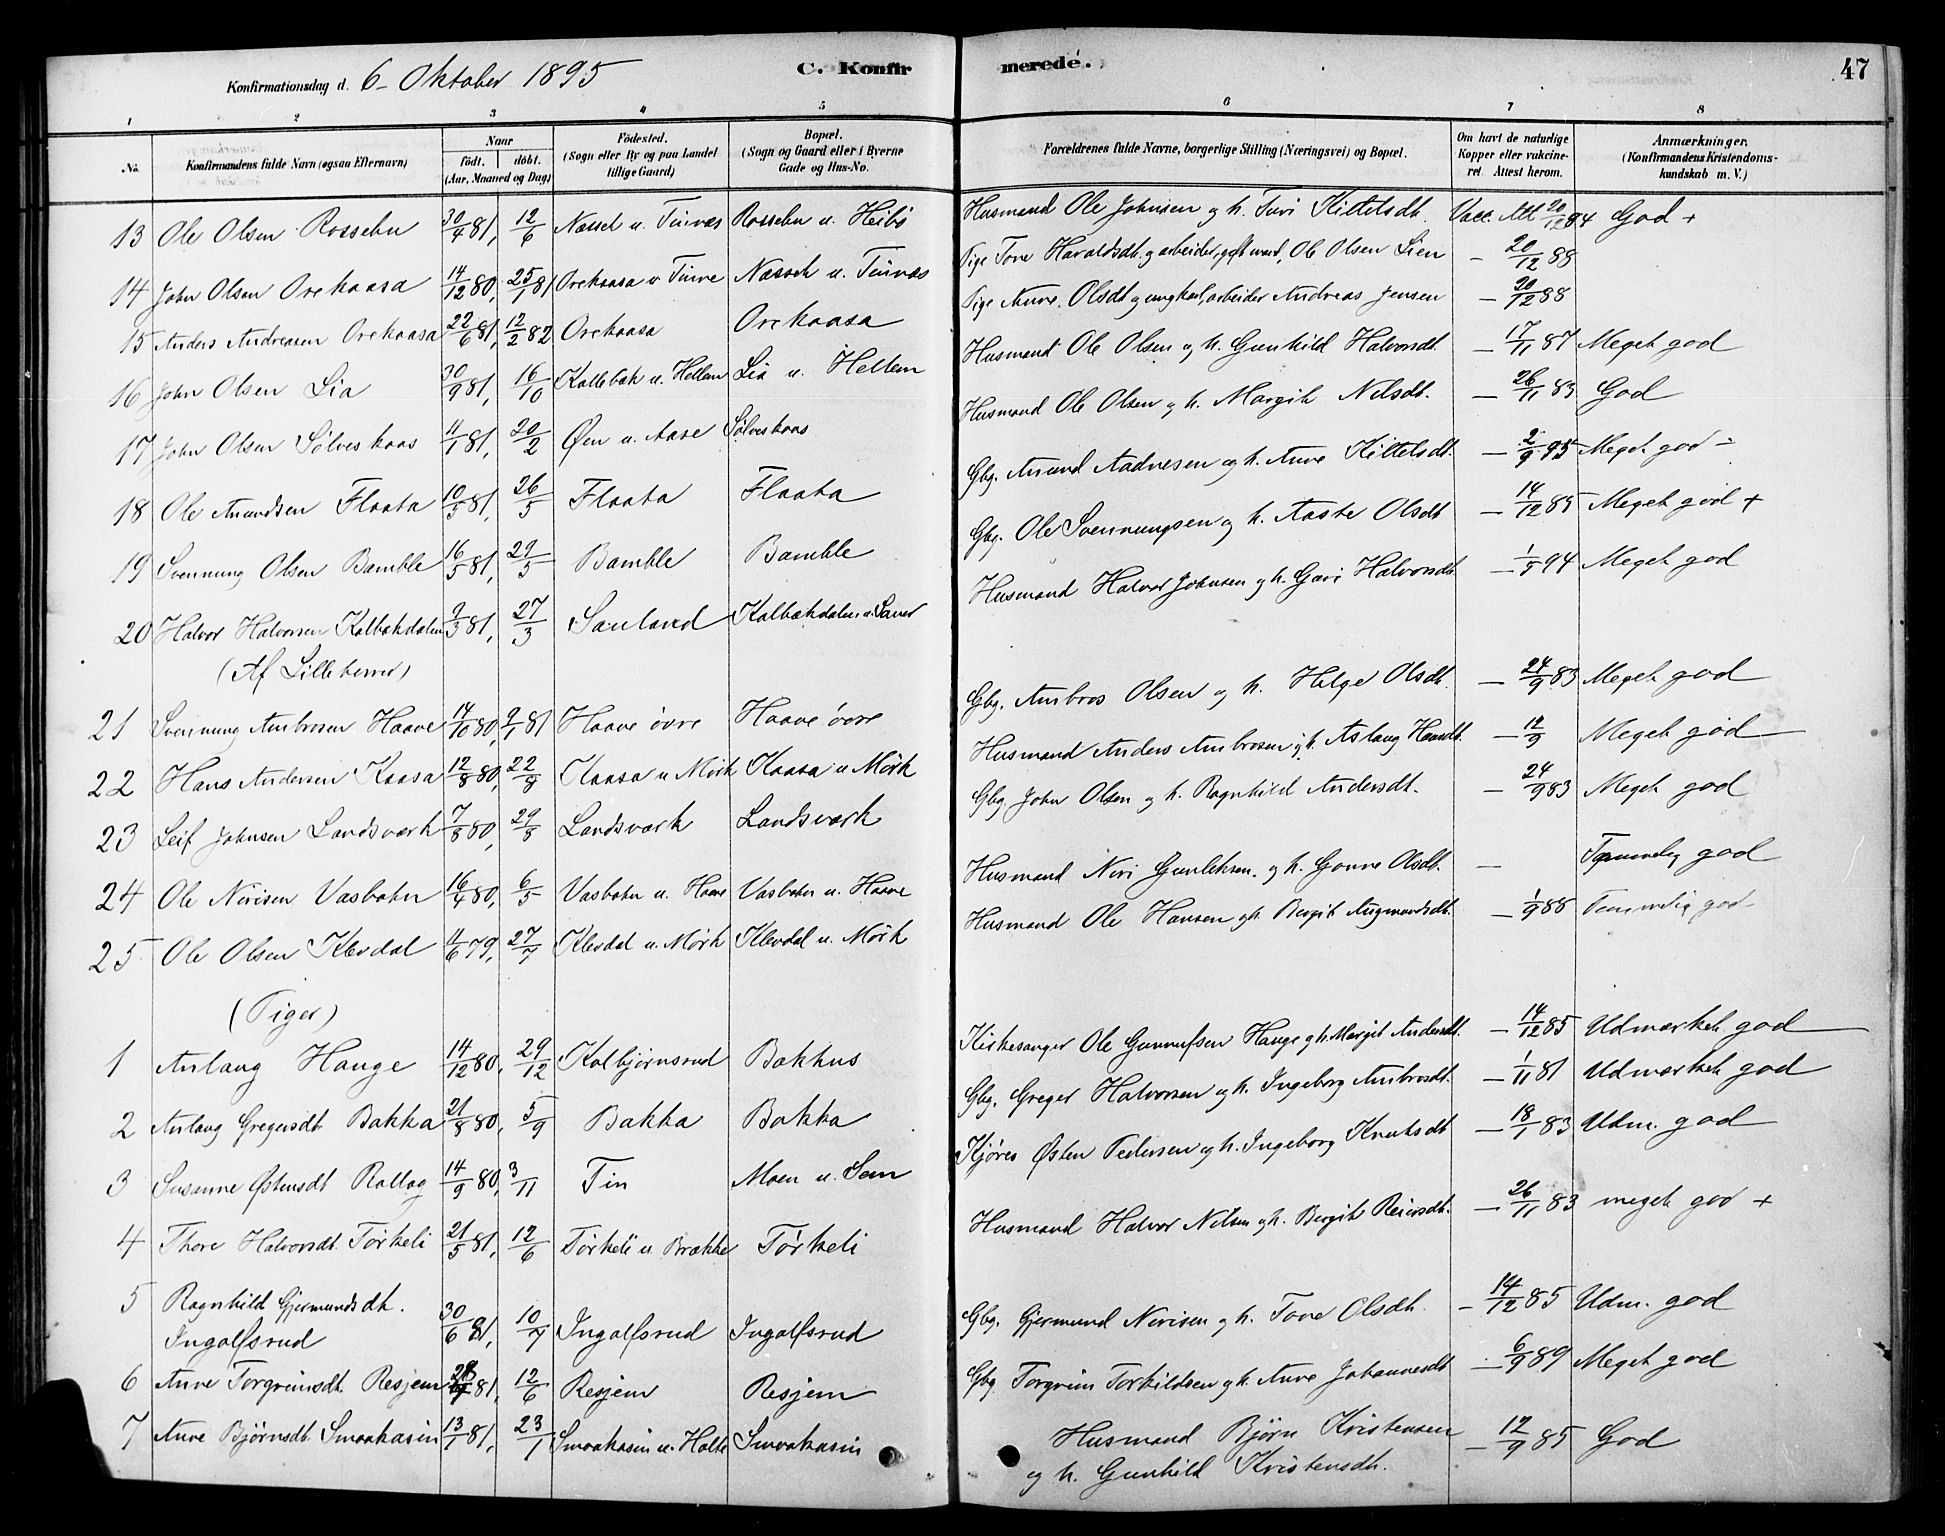 Konfirmationsdag d. 6. Oktober 1895 C. Konfirmerede. 47
1 2 3 4 5 6 7 8
No. Konfirmandens fulde Navn (ogsaa Efternavn) Naar født. døbt. (Aar, Maaned og Dag) Födested. (Sogn eller By og paa Landet tillige Gaard) Bopæl. (Sogn og Gaard eller i Byerne Gade og Hus-No. Forældrenes fulde Navne, borgerlige Stilling (Næringsvei) og Bopæl. Om havt de naturlige Kopper eller vakcineret. Attest herom. Anmærkninger. (Konfirmandens Kristendomskundskab m. V.)
13 Ole Olsen Rossebu 30/4 81, 12/6 Næsset u. Tinnæs Rossebu u. Heibö Husmand Ole Johnsen og h. Turi Kittelsdt. Vacc. Att. 20/12 84 God +
14 John Olsen Orekaasa 14/12 80, 25/1 81 Orekaasa u. Næsset u. Tinnæs Pige Tone Haraldsdt. og arbeider, gift mand, Ole Olsen Lien – 20/12 88
15 Anders Andreasen Orekaasa 22/6 81, 12/2 82 Orekaasa Orekaasa Pige Anne Olsdt og ungkarl, arbeider Andreas Jensen – 20/12 88
16 John Olsen Lia 30/9 81, 16/10 Kallebæk u. Hellem Lia u. Hellem Husmand Ole Olsen og h. Gunhild Halvorsdt. – 17/11 87 Meget god
17 John Olsen Sølveskaas 4/1 81, 20/2 Øen u. Aase Sølveskaas Husmand Ole Olsen og h. Margit Nelsdt. – 26/11 83 God
18 Ole Amundsen Flaata 10/5 81, 26/5 Flaata Flaata Gbg. Amund Aadnesen og h. Anne Kittelsdt. – 2/9 95 Meget god –
19 Svennung Olsen Bamble 16/5 81, 29/5 Bamble Bamble Gbg. Ole Svennungsen og h. Aaste Olsdt – 14/12 85 Meget god +
20 Halvor Halvorsen Kalbækdalen 9/3 81, 27/3 Sauland Kalbækdalen u. Husmand Halvor Johnsen og h. Gavi Halvorsdt. – 1/5 94 Meget god
(Af Lilleherred)
21 Svennung Ambrosen Haave 14/10 80, 9/1 81 Haave övre Haave övre Gbg. Ambros Olsen og h. Helge Olsdt. – 24/9 83 Meget god
22 Hans Andersen Kaasa 12/8 80, 22/8 Kaasa u Mørk Kaasa u Mørk Husmand Anders Ambrosen og h. Aslaug Hansdt. – 12/9 Meget god
23 Leif Johnsen Landsværk 7/8 80, 29/8 Landsværk Landsværk Gbg. John Olsen og h. Ragnhild Andersdt. – 24/9 83 Meget god
24 Ole Nirisen Vasbotn 16/4 80, 6/5 Vasbotn u. Haave Vasbotn u. Haave Husmand Niri Gunleiksen og h. Gonne Olsdt. – Temmelig god
25 Ole Olsen Klevdal 4/6 79, 27/7 Klevdal u. Mørk Klevdal u. Mørk Husmand Ole Hansen og h. Bergit Augmundsdt. – 1/9 88 Temmelig god
(Piger)
1 Aslaug Hauge 14/12 80, 29/12 Kolbjørnsrud Bakhus Kirkesanger Ole Gunnulfsen Hauge og h. Margit Andersdt. – 14/12 85 Udmærket god
2 Aslaug Gregersdt. Bakka 21/8 80, 5/9 Bakka Bakka Gbg. Greger Halvorsen og h. Ingeborg Ambrosdt. – 1/11 81 Udmærket god
3 Susanne Østensdt Rollag 14/9 80, 3/11 Tin Moen u. Sem Østen Pedersen og h. Ingeborg Knutsdt – 18/1 83 Udm. god
4 Thore Halvorsdt. Törkeli 21/5 81, 12/6 Törkeli u. Brække Törkeli Husmand Halvor Nelsen og h. Bergit Reiersdt. – 26/11 83 meget god +
5 Ragnhild Gjermundsdt.
Ingolfsrud 30/6 81, 10/7 Ingolfsrud Ingolfsrud Gbg. Gjermund Nirisen og h. Tone Olsdt. – 14/12 85 Udm. god
6 Anne Torgrimsdt. Resjem 81, 12/6 Resjem Resjem Gbg. Torgrim Torkildsen og h. Anne Johannesdt – 6/9 89 Meget god
7 Anne Bjørnsdt. Smaakasin 13/1 81, 23/1 Smaakasin u. Holte Smaakasin Husmand Bjørn Kristensen – 12/9 85 God
og h. Gunhild Kristensdt.